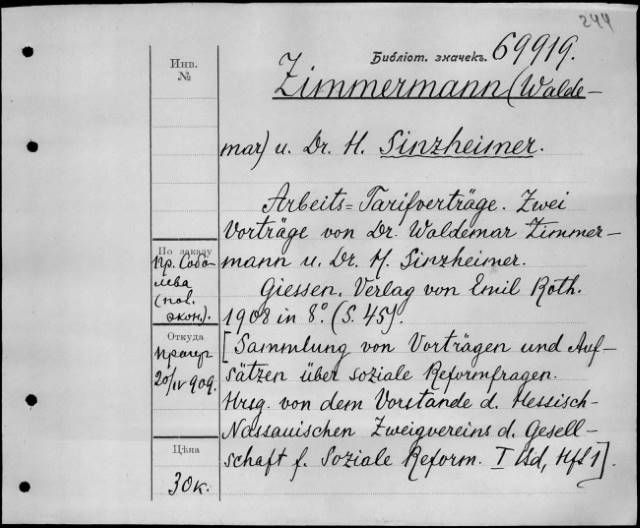 244
Библіот. значекъ. 69919.
Инв.
№
Zimmermann (Walde-
mar) u. Dr. H. Sinzheimer.
Arbeits=Tarifverträge. Zwei
Vorträge von Dr. Waldemar Zimmer-
mann u. Dr. H. Sinzheimer.
Giessen. Verlag von Emil Roth.
1908 in 8º. (S. 45).
[Sammlung von Vorträgen und Auf-
sätzen über soziale Reformfragen.
Hrsg. von dem Vorstande d. Hessisch-
Nassauischen Zweigvereins d. Gesell-
schaft f. Soziale Reform. I Bd, Hft 1].
По заказу
пр. Собо-
лева
(пол.
экон).
Откуда
Прагер
20/IV 909.
Цѣна
30 к.